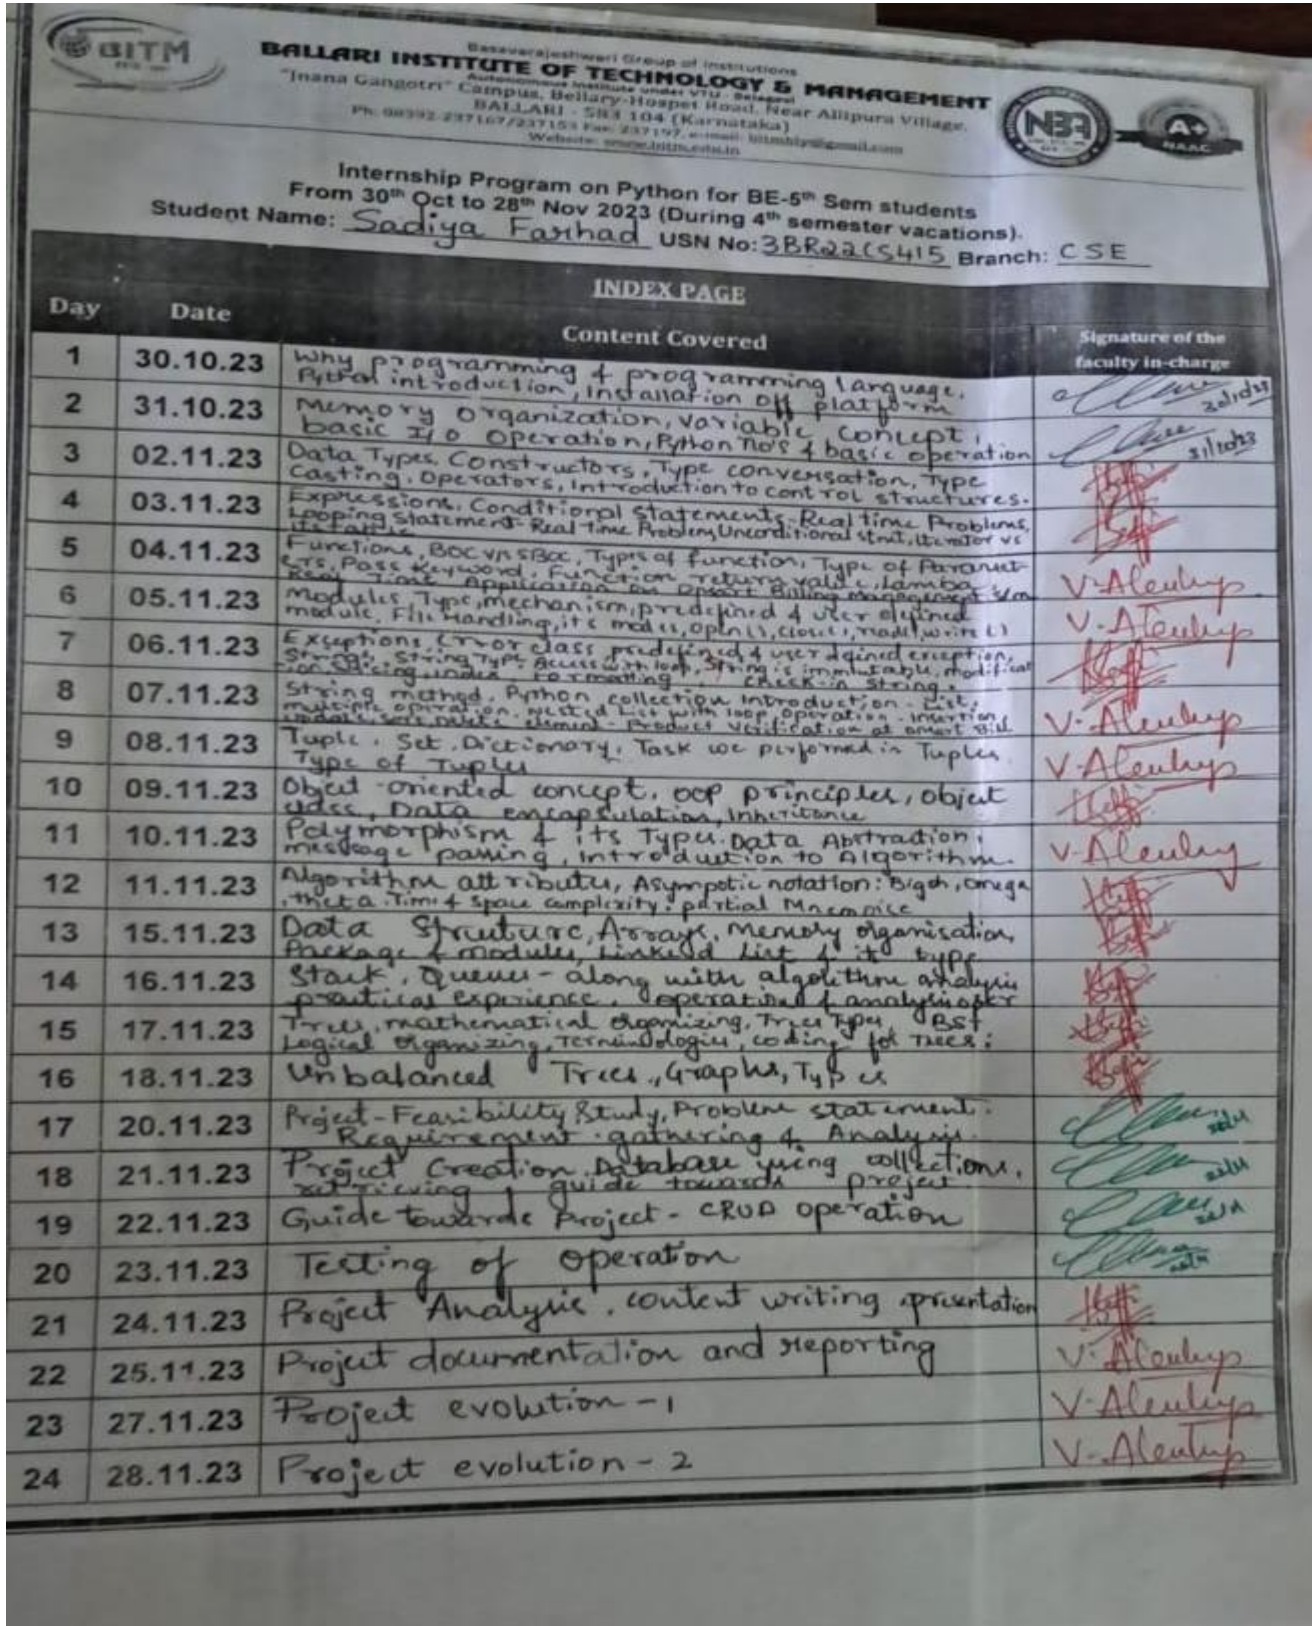 BITM
Basavarajeshwari Group of Institutions
BALLARI INSTITUTE OF TECHNOLOGY & MANAGEMENT
Autonomous Institute under VTU - Belagavi
"Jnana Gangotri" Campus, Bellary-Hospet Road, Near Allipura Village,
BALLARI - 583 104 (Karnataka)
Ph: 08392-237167/237153 Fax: 237197, e-mail: bitmbly@gmail.com
Website: www.bitm.edu.in
NBA
A+
NAAC
Internship Program on Python for BE-5th Sem students
From 30th Oct to 28th Nov 2023 (During 4th semester vacations).
Student Name: Sadiya Farhad USN No: 3BR22CS415 Branch: CSE
INDEX PAGE
Day Date Content Covered Signature of the
faculty in-charge
1 30.10.23 Why programming & programming language,
Python introduction, Installation off platform
30/10/23
2 31.10.23 Memory organization, variable concept,
basic I/O operation, Python No's & basic operation
31/10/23
3 02.11.23 Data Types, Constructors, Type conversation, Type
Casting, Operators, Introduction to control structures.
4 03.11.23 Expressions, Conditional Statements-Real time Problems,
Looping Statement-Real Time Problem, Unconditional stmt, iterator vs
5 04.11.23 Functions, Types of function, Type of
Pass Keyword, Function return value, Lamba
Real Time Application on Billing Management
6 05.11.23 Modules Type, mechanism, predefined & user defined
module, File Handling, its modes, open(), close(), read(), write()
7 06.11.23 Exceptions, Error class predefined & user defined exception,
String Type, Access with loop, String is immutable, modificat
ion slicing, index, Formatting, check-in String.
8 07.11.23 String method, Python collection Introduction - List,
multiple operation, nested List with loop, operation - insertion,
update, delete element - Product Verification at smart Bill
9 08.11.23 Tuple, Set, Dictionary, Task we performed in Tuples
Type of Tuples
10 09.11.23 Object-oriented concept, oop principles, object
class, Data encapsulation, Inheritance
11 10.11.23 Polymorphism & its Types. Data Abstraction,
message passing, Introduction to Algorithm.
12 11.11.23 Algorithm attributes, Asympotic notation: Bigoh, omega
,theta. Time & space complexity.
13 15.11.23 Data Structure, Arrays, Memory organisation,
Package & modules, Linked List & its type
14 16.11.23 Stack, Queues - along with algorithm analysis
practical experience, operational & analysis
15 17.11.23 Trees, mathematical organizing, Tree Types BST
Logical organizing, Terminologies, coding for Trees:
16 18.11.23 Unbalanced Trees, Graphs, Types
17 20.11.23 Project-Feasibility Study, Problem statement.
Requirement gathering & Analysis.
18 21.11.23 Project Creation, Database using collections,
retrieving, guide towards project.
19 22.11.23 Guide towards Project - CRUD operation
20 23.11.23 Testing of operation
21 24.11.23 Project Analysis, content writing, presentation
22 25.11.23 Project documentation and reporting
23 27.11.23 Project evolution - 1
24 28.11.23 Project evolution - 2